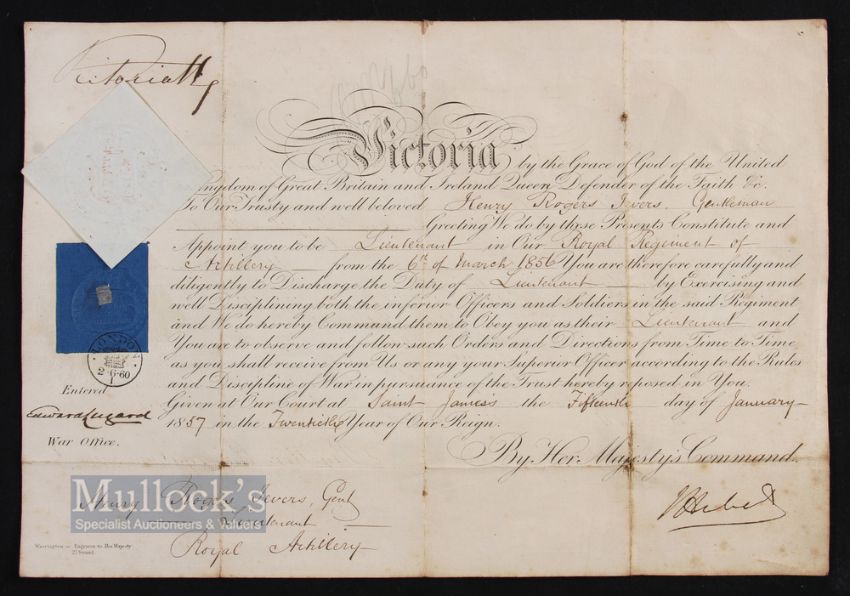 Victoria R
Victoria by the Grace of God of the United
Kingdom of Great Britain and Ireland Queen Defender of the Faith &c.
To Our Trusty and well beloved Henry Rogers Ievers. Gentleman
Greeting We do by these Presents Constitute and
Appoint you to be Lieutenant in Our Royal Regiment of
Artillery from the 6th of March 1856 You are therefore carefully and
diligently to Discharge the Duty of Lieutenant by Exercising and
well Disciplining both the inferior Officers and Soldiers in the said Regiment
and We do hereby Command them to Obey you as their Lieutenant and
You are to observe and follow such Orders and Directions from Time to Time
as you shall receive from Us or any your Superior Officer according to the Rules
and Discipline of War in pursuance of the Trust hereby reposed in You.
Given at Our Court at Saint James's the Fifteenth day of January
1857 in the Twentieth Year of Our Reign.
By Her Majesty's Command.
LONDON
2·6·60
1
Entered
Edward Lugard
War Office.
Henry Rogers Ievers, Gent
Lieutenant
Royal Artillery
Mullock's
Specialist Auctioneers & Valuers
Warrington Engraver to Her Majesty
27 Strand.